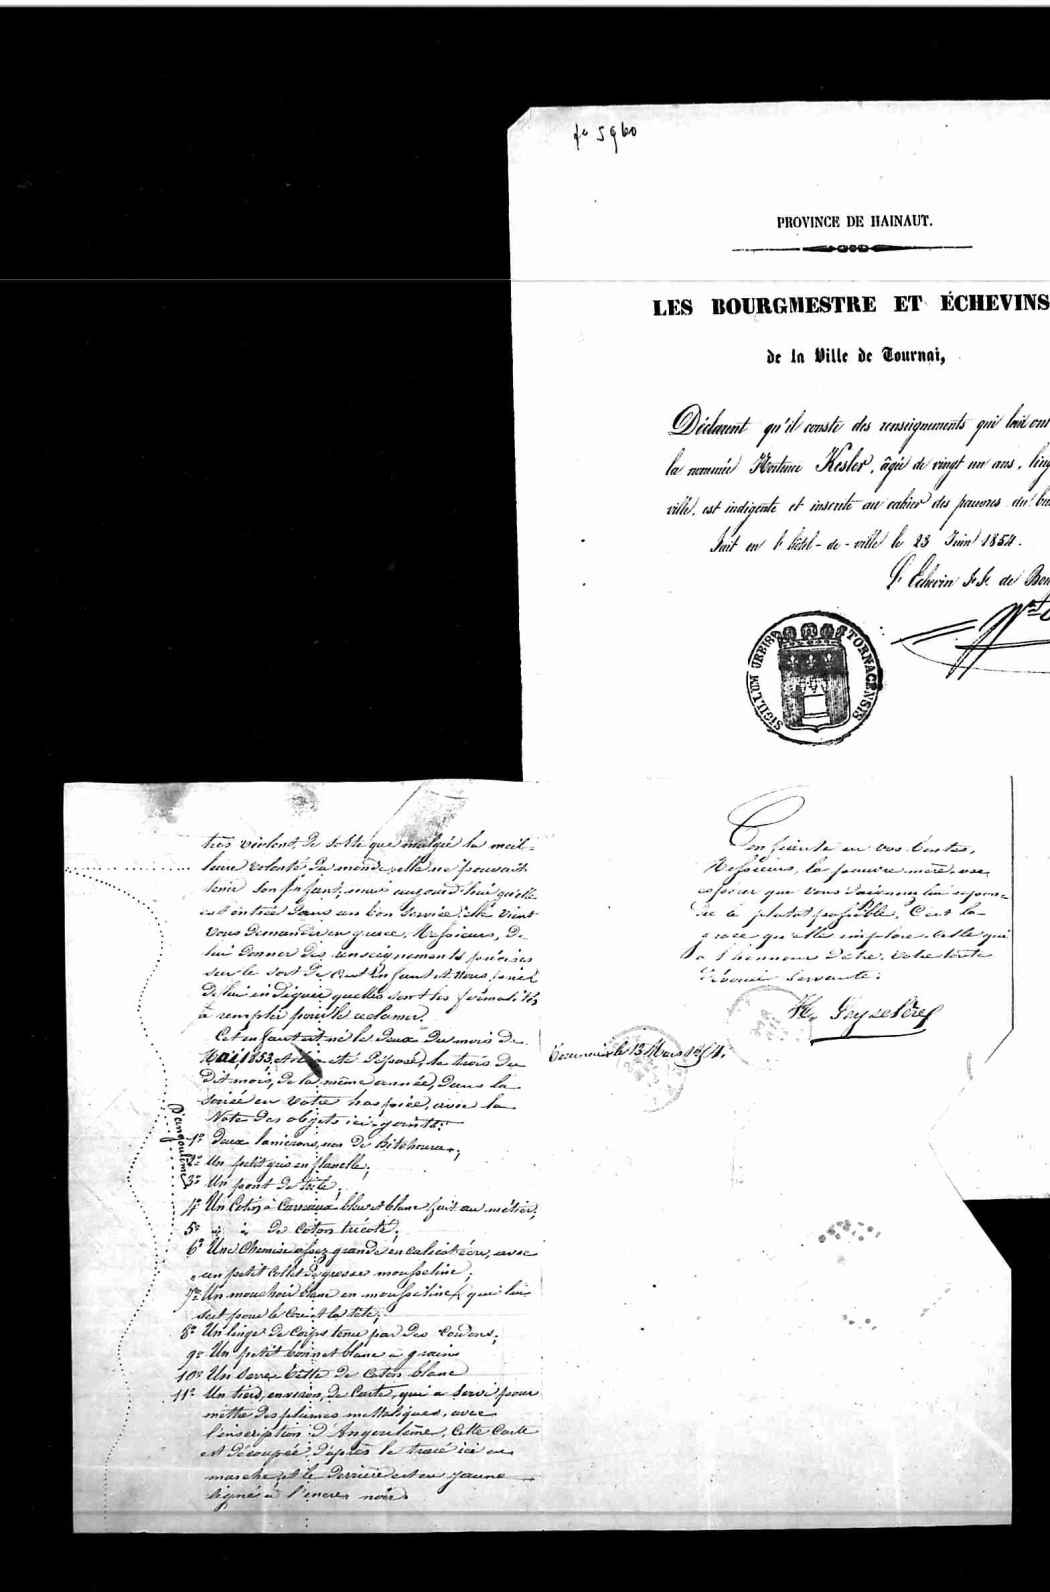 PROVINCE DE HAINAUT.
LES BOURGMESTRE ET ÉCHEVINS
de la Ville de Tournai,
Déclarent qu'il conste des renseignements qui leur ont
la nommée Hortence Kesler, âgée de vingt un ans,
ville, est indigente et inscrite au cahier des pauvres du
Fait en l'hôtel-de-ville le 23 Juin 1854.
L'Echevin ff. de
SIGILLUM URBIS TORNACENSIS
très violent, De sorte que malgré la meil-
leure volonté du monde, elle ne pouvait
tenir son Enfant; mais aujourd'hui qu'elle
est entrée dans un bon service, elle vient
vous demander en grace, Messieurs, De
lui donner Des renseignements précis
sur le sort De cet Enfant et vous prie
De lui indiquer quelles sont les formalités
à remplir pour le réclamer.
Cet enfant est né le Deux Du mois de
Mai, 1853, et a été Déposé, le trois du
Dit mois, De la même année, Dans la
soirée en votre hospice, avec la
Note Des objets ici-joints:
D'angoulême
1° Deux
2° Un petit gris en flanelle;
3° Un de tête;
4° Un Coton à Carreaux bleu et blanc fait au métier;
5° " " De Coton tricoté;
6° Une Chemise assez grande en calicot écru, avec
un petit Collet De grosse mousseline;
7° Un mouchoir blanc en mousseline, qui lui
sert pour le Cou et la tête;
8° Un linge De Corps tenu par Des Cordons;
9° Un petit bonnet blanc à grains
10° Un Serre-tête De Coton blanc
11° Un tiers, environ, De Carte, qui a servi pour
mettre Des plumes métalliques, avec
l'inscription: D'Angoulême, Cette Carte
est Découpée D'après le tracé ici en
marche, et le Derrière est en jaune
ligné à l'encre noire
Confiante en vos bontés,
Messieurs, la pauvre mère, ose
espérer que vous Daignerez lui répon-
dre le plutot possible, C'est la
grace qu'elle implore Celle qui
a l'honneur D'être, votre toute
Dévouée Servante:
Tournai le 13 Mars 1854.